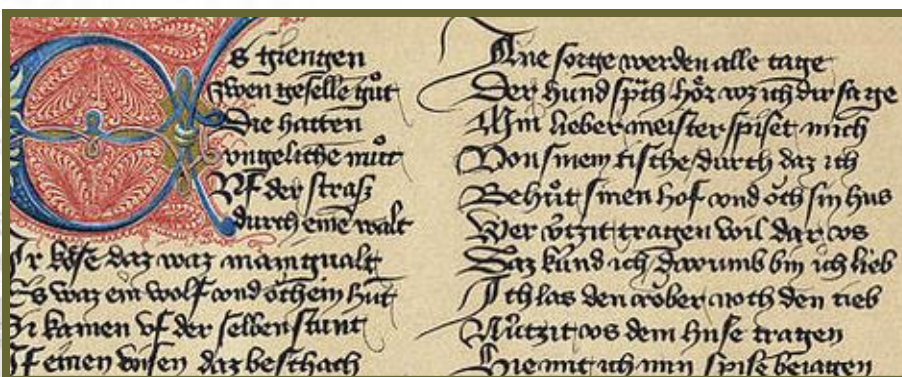 Es giengen
zwen geselle guͦt
Die hatten
vngeliche muͦt
Vf der straß
durch eine walt
Ir kose daz waz manigualt
Es waz ein wolf vnd oͮch ein hunt
Si kamen vf der selben stunt
Vf einen wisen daz beschach
Ane sorge werden alle tage
Der hund spͥch hoͤr wz ich dir sage
Min lieber meister spiset mich
Von sinem tische durch daz ich
Behuͤt sinen hof vnd oͮch sin hus
Wer uͤtzit tragen wil dar vs
Daz künd ich darumb bin ich lieb
Ich las den rober noch den tieb
Nuͤtzit vs dem huse tragen
Hie mit ich min spise beiagen